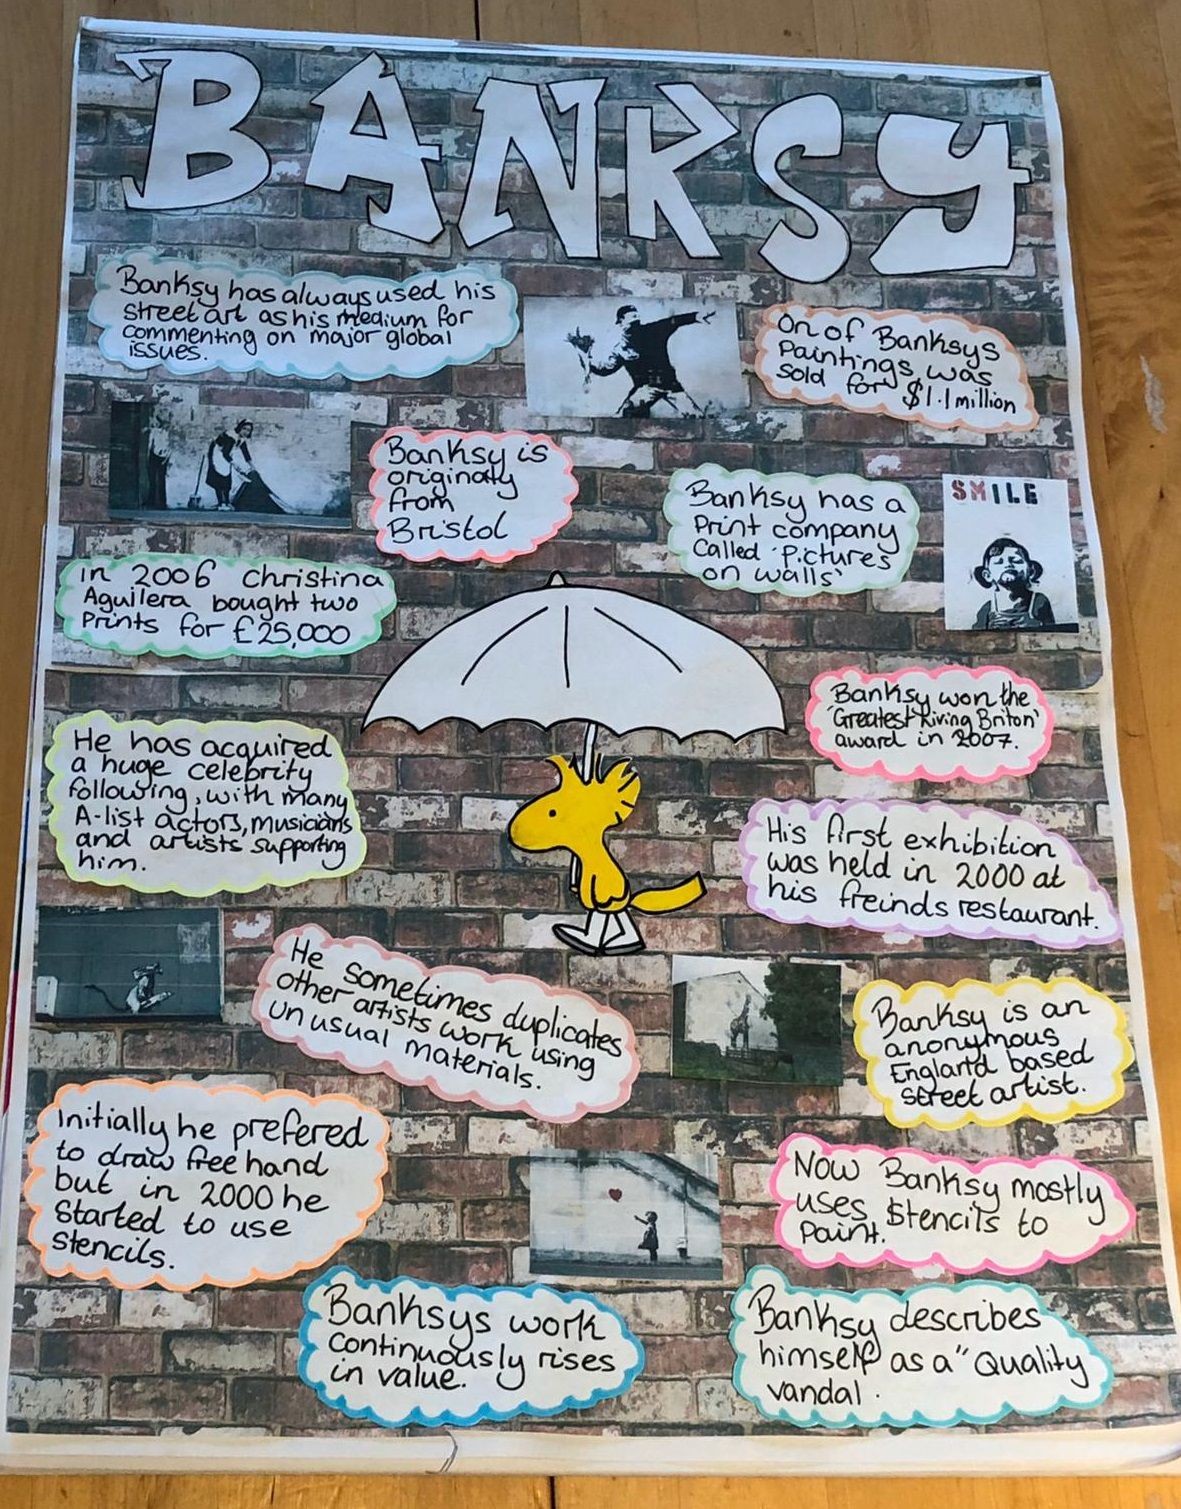 BANKSY
Banksy has always used his
street art as his medium for
commenting on major global
issues.
On of Banksys
Paintings was
sold for $1.1 million
Banksy is
originally
from
Bristol
Banksy has a
Print company
Called 'Pictures
on walls'
SMILE
in 2006 Christina
Aguilera bought two
Prints for £25,000
Banksy won the
'Greatest Living Briton'
award in 2007.
He has acquired
a huge celebrity
following, with many
A-list actors, musicians
and artists supporting
him.
His first exhibition
was held in 2000 at
his freinds restaurant.
He sometimes duplicates
other artists work using
unusual materials.
Banksy is an
anonymous
England based
street artist.
Initially he prefered
to draw free hand
but in 2000 he
Started to use
stencils.
Now Banksy mostly
uses Stencils to
Paint.
Banksys work
Continuously rises
in value.
Banksy describes
himself as a "Quality
vandal.